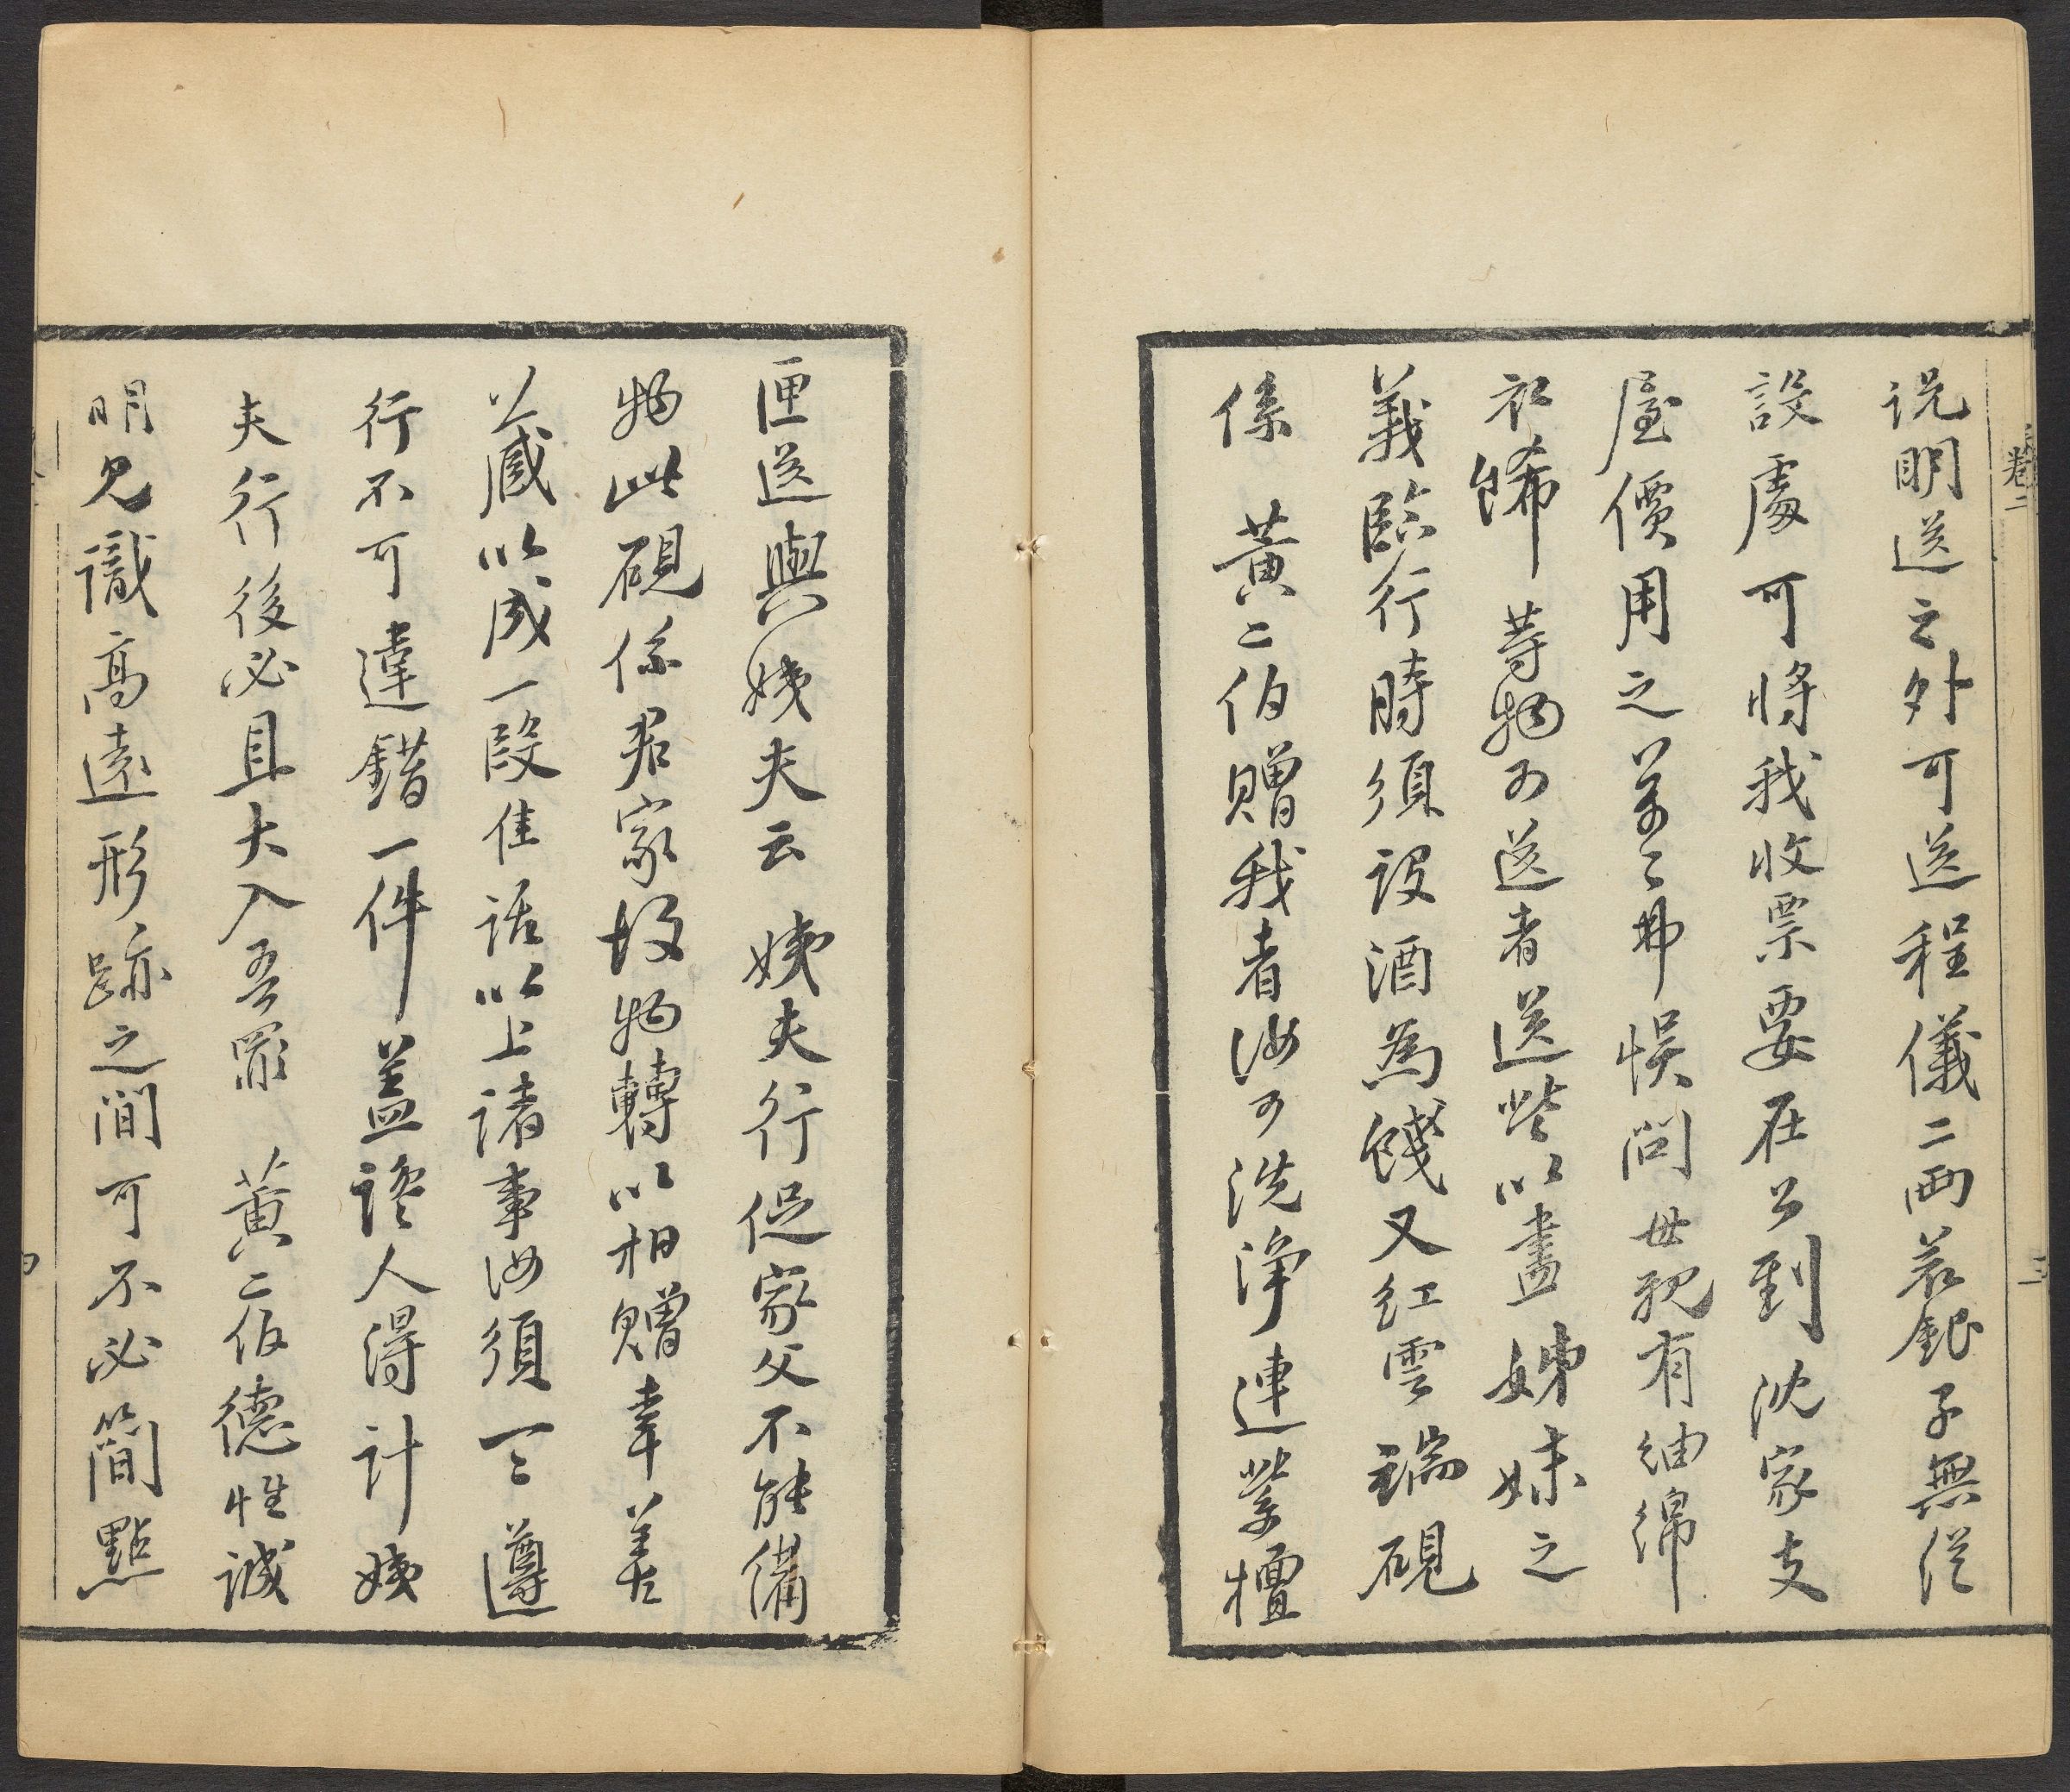 卷二
説明送之外可送程儀二兩若銀子無從
設處可將我收票要在公到沈家支
屋價用之萬〻弗悞問母親有紬綿
衣飾等物可送者送些以盡姊妹之
義臨行時須設酒為餞又紅雲端硯
係 黃二伯贈我者汝可洗淨連紫檀
匣送與姨夫云 姨夫行促家父不能備
物此硯係君家故物轉以相贈幸善
藏以成一段佳話以上諸事汝須一〻遵
行不可違錯一件蓋讒人得計姨
夫行後必且大入吾罪 黃二伯德性誠
明見識高遠形跡之間可不必簡點